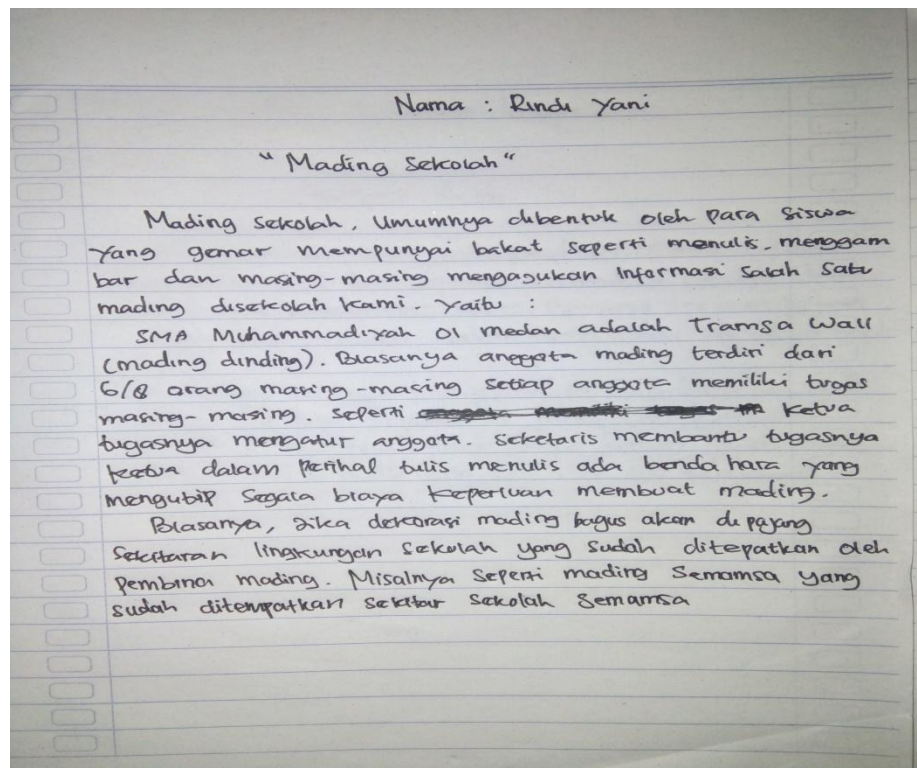 Nama : Rindu Yani
"Mading Sekolah"
Mading sekolah, Umumnya dibentuk oleh para siswa
yang gemar mempunyai bakat seperti menulis, menggam
bar dan masing-masing mengajukan informasi salah satu
mading disekolah kami. Yaitu :
SMA Muhammadiyah 01 medan adalah Tramsa Wall
(mading dinding). Biasanya anggota mading terdiri dari
6/8 orang masing-masing setiap anggota memiliki tugas
masing-masing. Seperti Ketua
tugasnya mengatur anggota. Seketaris membantu tugasnya
ketua dalam perihal tulis menulis ada benda hara yang
mengutip segala biaya keperluan membuat mading.
Biasanya, jika dekorasi mading bagus akan di pajang
Sekitaran lingkungan sekolah yang sudah ditepatkan oleh
Pembina mading. Misalnya seperti mading Semamsa yang
sudah ditempatkan sekitar sekolah Semamsa